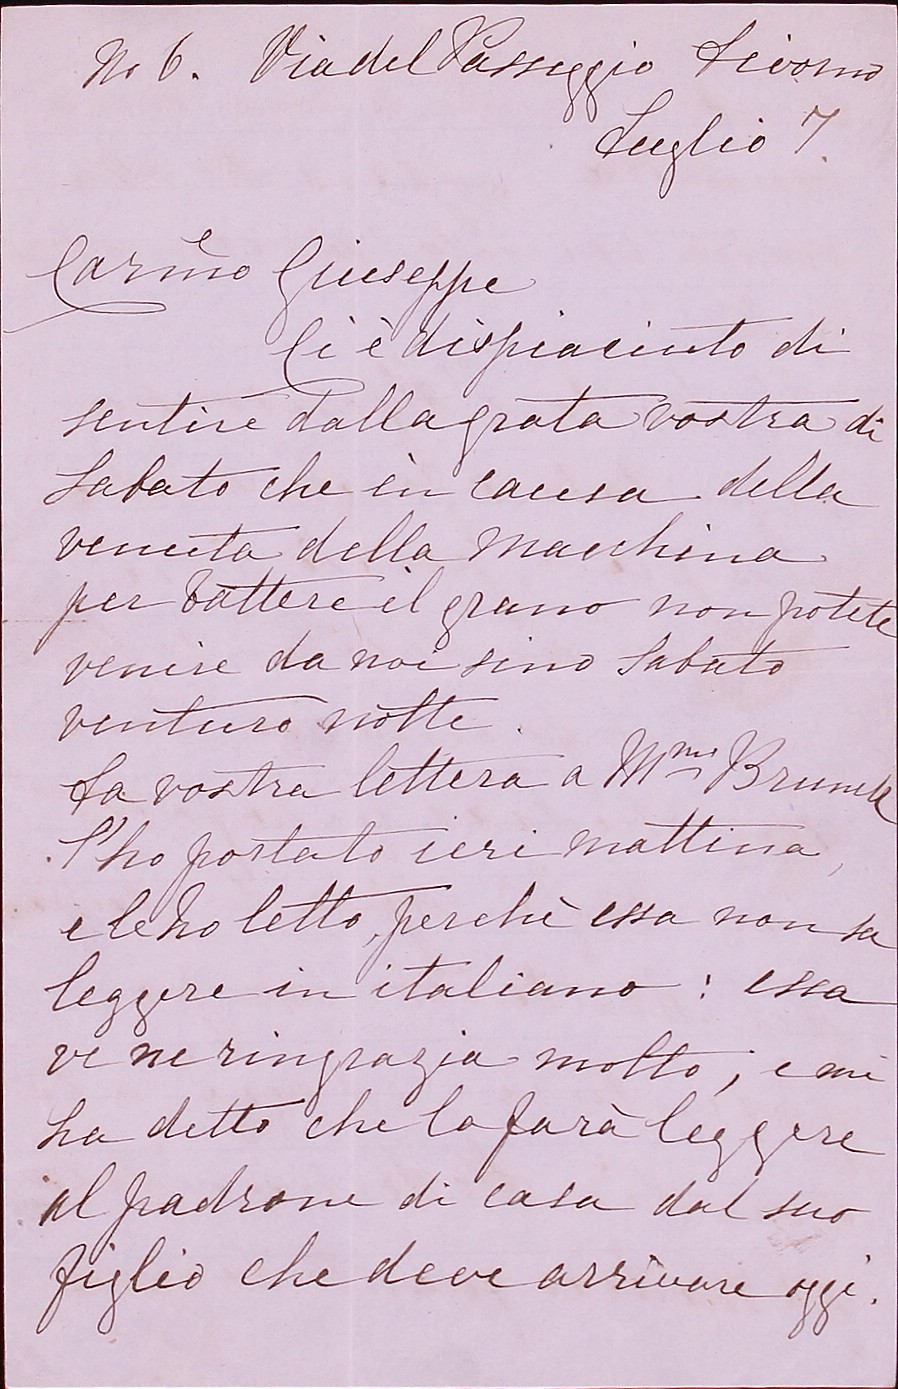 No 6. Via del Passeggio Livorno
Luglio 7.
Carmo e Giuseppe
Ci è dispiaciuto di
sentire dalla grata vostra di
Sabato che in causa della
venuta della macchina
per battere il grano non potete
venire da noi sino Sabato
venturo notte.
La vostra lettera a Mme
l'ho portato ieri mattina,
e le ho letto, perchè essa non sa
leggere in italiano: essa
ve ne ringrazia molto; e mi
ha detto che la farà leggere
al padrone di casa dal suo
figlio che deve arrivare oggi.